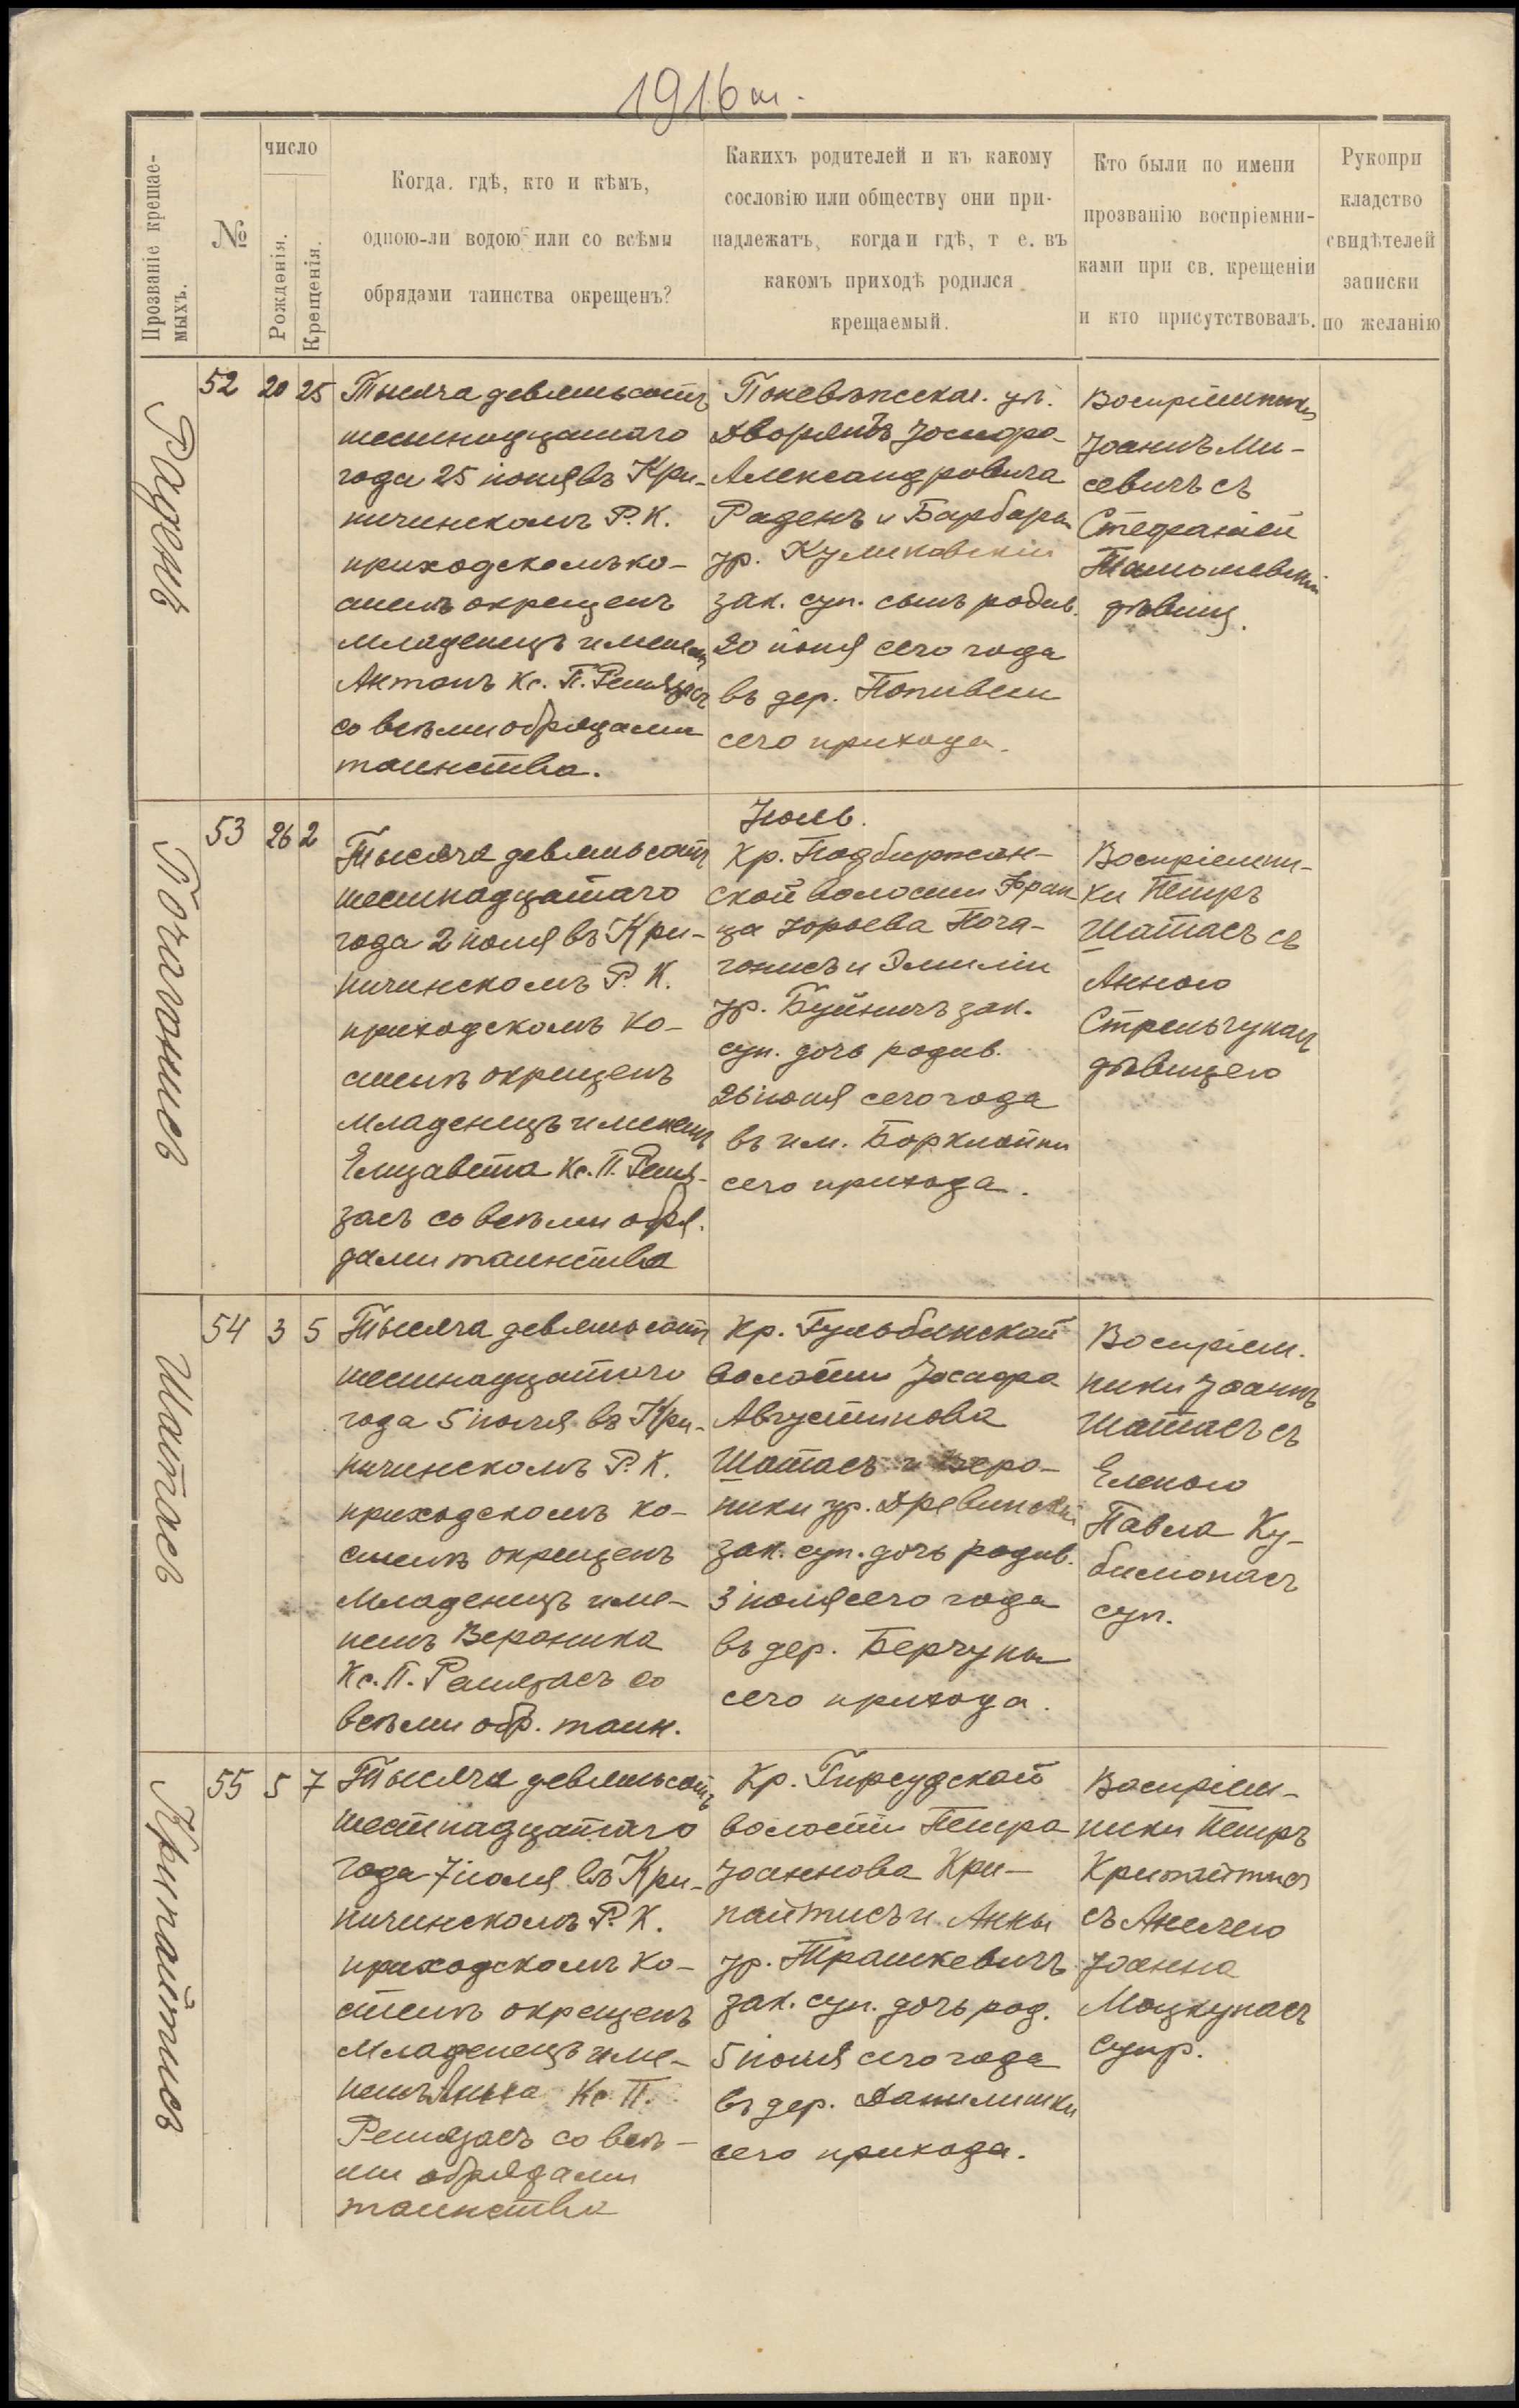 1916 м.
Прозваніе крещае-
мыхъ.
№
число
Рожденія.
Крещенія.
Когда, гдѣ, кто и кѣмъ,
одною-ли водою или со всѣми
обрядами таинства окрещенъ?
Какихъ родителей и къ какому
сословію или обществу они при-
надлежатъ, когда и гдѣ, т е. въ
какомъ приходѣ родился
крещаемый.
Кто были по имени
прозванію воспріемни-
ками при св. крещеніи
и кто присутствовалъ.
Рукопри
кладство
свидѣтелей
записки
по желанію
Раденъ
52 20 25
Тысяча девятьсотъ
шестнадцатаго
года 25 іюня въ Кри-
ничинскомъ Р. К.
приходскомъ ко-
стелѣ окрещенъ
младенецъ именемъ
Антонъ Кс. П. Ремязасъ
со всѣми обрядами
таинства.
Поневѣжска. уѣ.
Дворянъ Іосифа
Александровича
Раденъ и Барбары
ур. Куликовскій
зак. суп. сынъ родив.
20 іюня сего года
въ дер.
сего прихода.
Воспріемники
Іоаннъ Ми-
севичъ съ
Стефаніей
дѣвиц.
Почигонисъ
53 26 2
Тысяча девятьсотъ
шестнадцатаго
года 2 іюля въ Кри-
ничинскомъ Р. К.
приходскомъ ко-
стелѣ окрещенъ
младенецъ именемъ
Елизавета Кс. П. Ремя-
засъ со всѣми обря-
дами таинства
Іюль.
Кр. Подбиржан-
ской волости Фран
ца Юрьева Поча-
гонисъ и Эмиліи
ур. Буйничъ зак.
суп. дочь родив.
26 іюня сего года
въ им. Борклойни
сего прихода.
Воспріемни-
ки Петръ
Шатасъ съ
Анною
Стрельчунасъ
дѣвицею
Шатасъ
54 3 5
Тысяча девятьсотъ
шестнадцатаго
года 5 іюля въ Кри-
ничинскомъ Р. К.
приходскомъ ко-
стелѣ окрещенъ
младенецъ име-
немъ Вероника
Кс. П. Ремязасъ со
всѣми обр. таин.
Кр. Гульбинской
волости Іосифа
Августинова
Шатасъ и Веро-
ники ур. Древинскій
зак. суп. дочь родив.
3 іюля сего года
въ дер. Берчуны
сего прихода.
Воспріем-
ники Іоаннъ
Шатасъ съ
Еленою
Павла Ку-
билюнасъ
суп.
Крипайтисъ
55 5 7
Тысяча девятьсотъ
шестнадцатаго
года 7 іюля въ Кри-
ничинскомъ Р. К.
приходскомъ ко-
стелѣ окрещенъ
младенецъ име-
немъ Анна Кс. П.
Ремязасъ со всѣ-
ми обрядами
таинства
Кр. Гирсудской
волости Петра
Іоаннова Кри-
пайтисъ и Анны
ур. Трашкевичъ
зак. суп. дочь род.
5 іюля сего года
въ дер. Данилишки
сего прихода.
Воспріем-
ники Петръ
Крипайтисъ
съ Анелею
Іоанна
Моцкунасъ
супр.